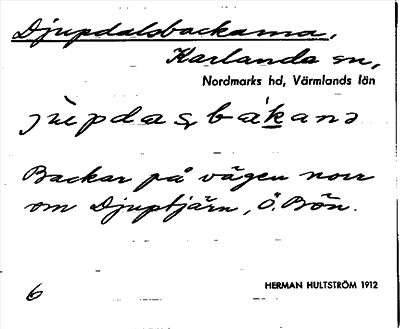 Djupdalsbackarna,
Karlanda sn,
Nordmarks hd, Värmlands län
Backar på vägen norr
om Djuptjärn, Ö. Bön.
6
HERMAN HULTSTRÖM 1912